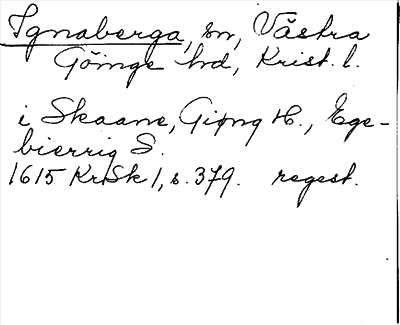 Ignaberga, sn, Västra
Göinge hd, Krist. l.
i Skaane, Giøng H., Ege-
bierrig S.
1615 KrSk 1, s. 379. regest.